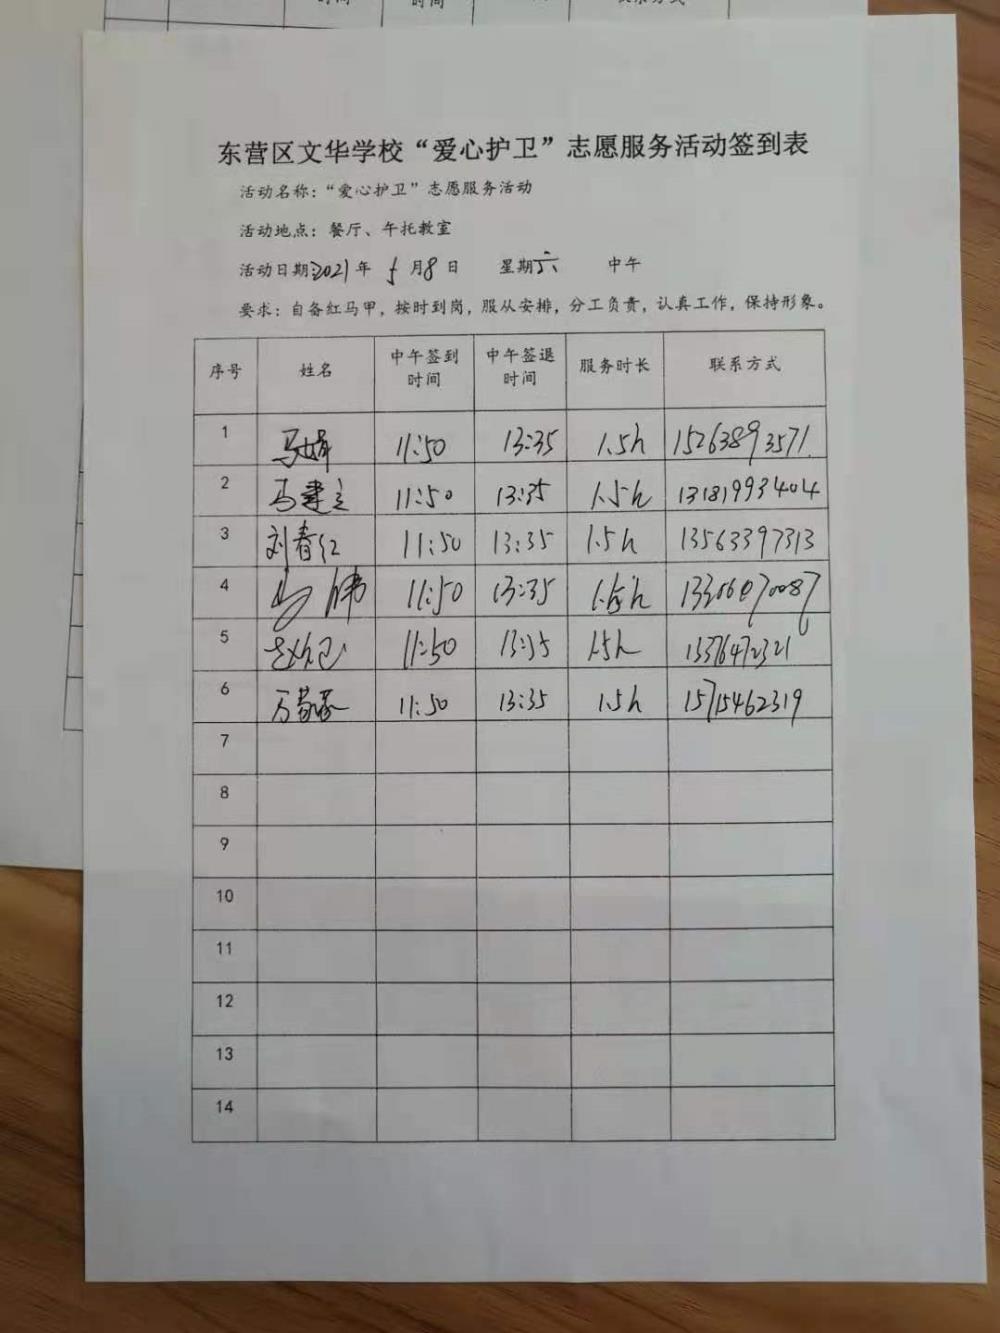 时间 时间 联系方式
东营区文华学校“爱心护卫”志愿服务活动签到表
活动名称：“爱心护卫”志愿服务活动
活动地点：餐厅、午托教室
活动日期：2021年 5月8日 星期六 中午
要求：自备红马甲，按时到岗，服从安排，分工负责，认真工作，保持形象。
序号 姓名 中午签到时间 中午签退时间 服务时长 联系方式
1 马娟 11:50 13:35 1.5h 15263893571
2 马建立 11:50 13:35 1.5h 13181993404
3 刘春红 11:50 13:35 1.5h 13563397313
4 11:50 13:35 1.5h
5 11:50 13:35 1.5h 13376472321
6 11:50 13:35 1.5h 15715462319
7
8
9
10
11
12
13
14